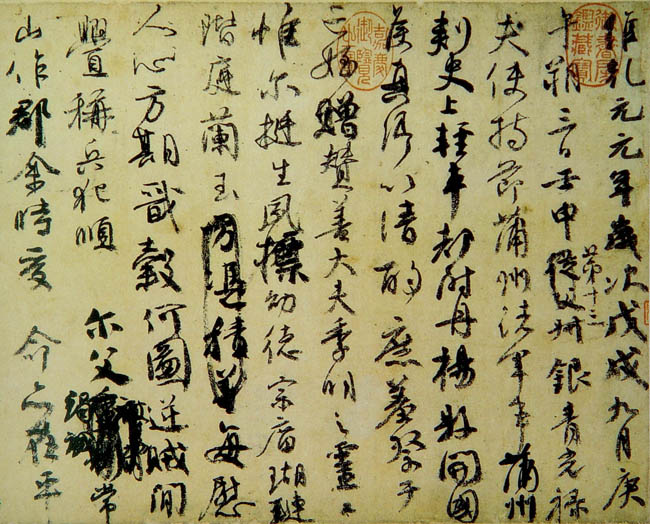 維乾元元年歲次戊戌九月庚
午朔三日壬申第十三從父銀青光祿
夫使持節蒲州諸軍事蒲州
刺史上輕車都尉丹楊縣開國
侯真卿以清酌庶羞祭于
亡姪贈贊善大夫季明之靈曰
惟尔挺生夙標幼德宗廟瑚璉
階庭蘭玉方憑積善每慰
人心方期戩穀何圖逆賊閒
釁稱兵犯順 尔父竭誠常
山作郡余時受命亦在平